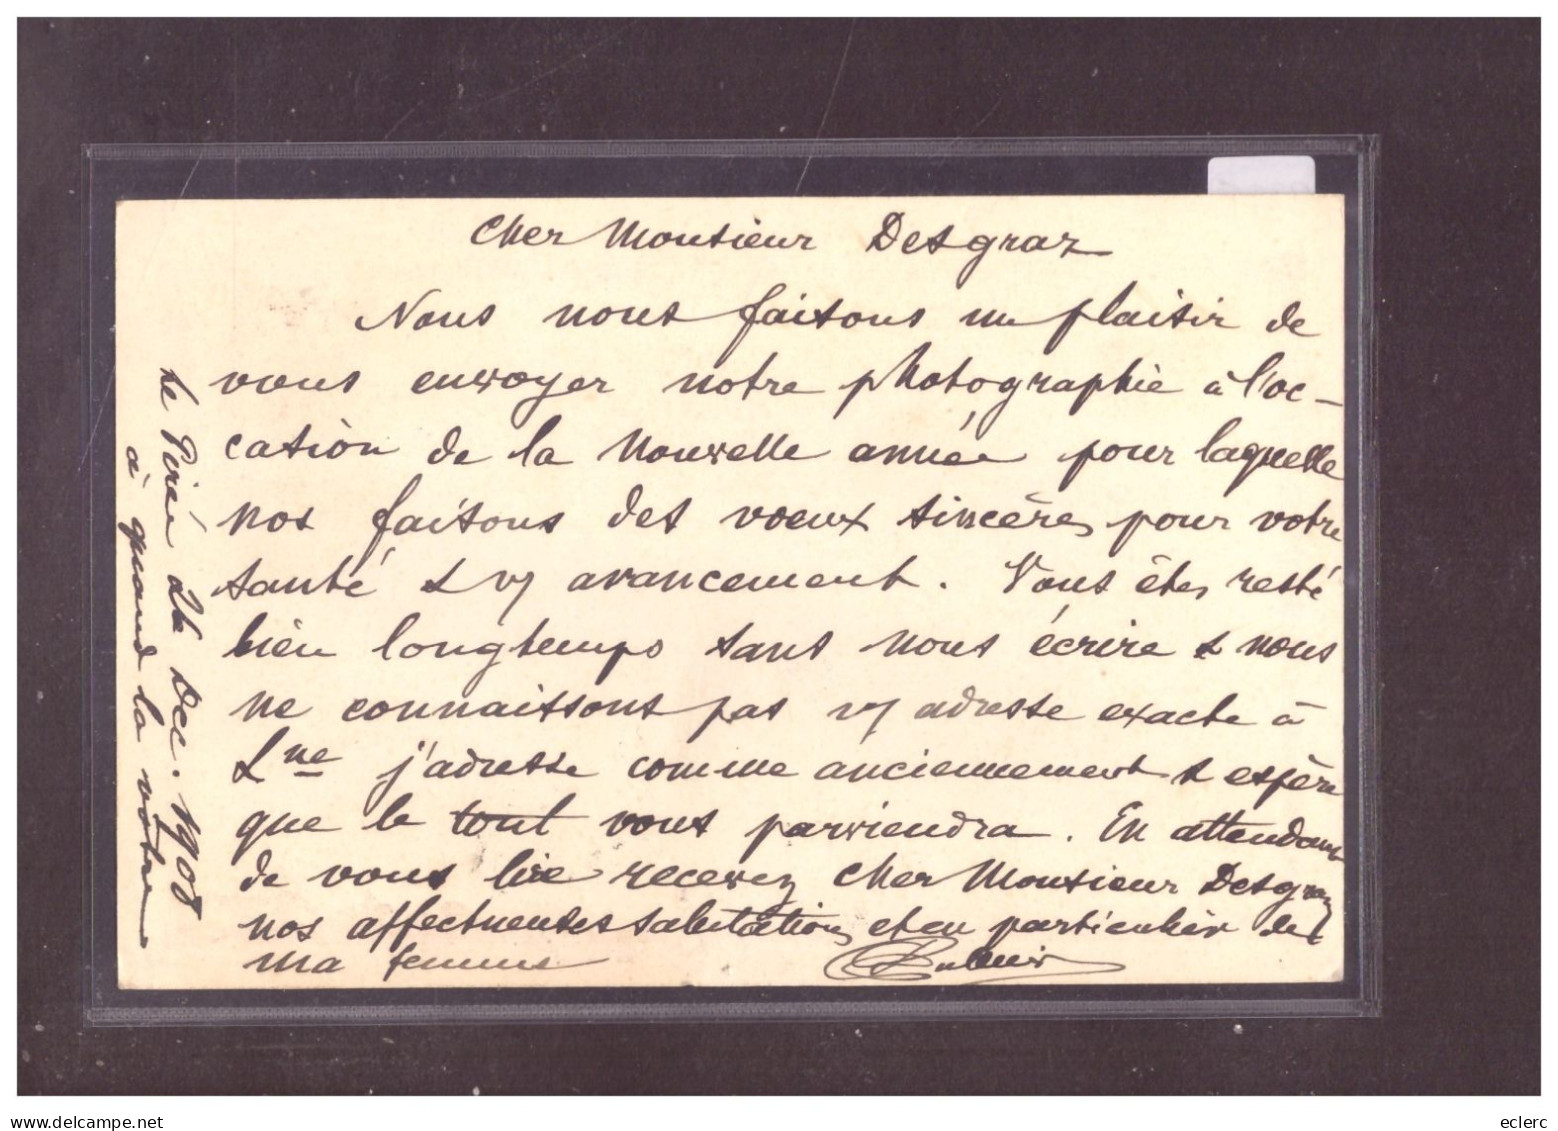 Cher Monsieur Desgraz
Nous nous faisons un plaisir de
vous envoyer notre photographie à l'oc-
casion de la nouvelle année pour laquelle
nos faisons des voeux sincères pour votre
santé & v/ avancement. Vous êtes resté
bien longtemps sans nous écrire & nous
ne connaissons pas v/ adresse exacte à
Lne j'adresse comme anciennement & espère
que le tout vous parviendra. En attendant
de vous lire recevez cher Monsieur Desgraz
nos affectueuses salutations et en particulier de
ma femme
le Pirée 26 Dec. 1908
à quand la vôtre
delcampe.net
eclerc